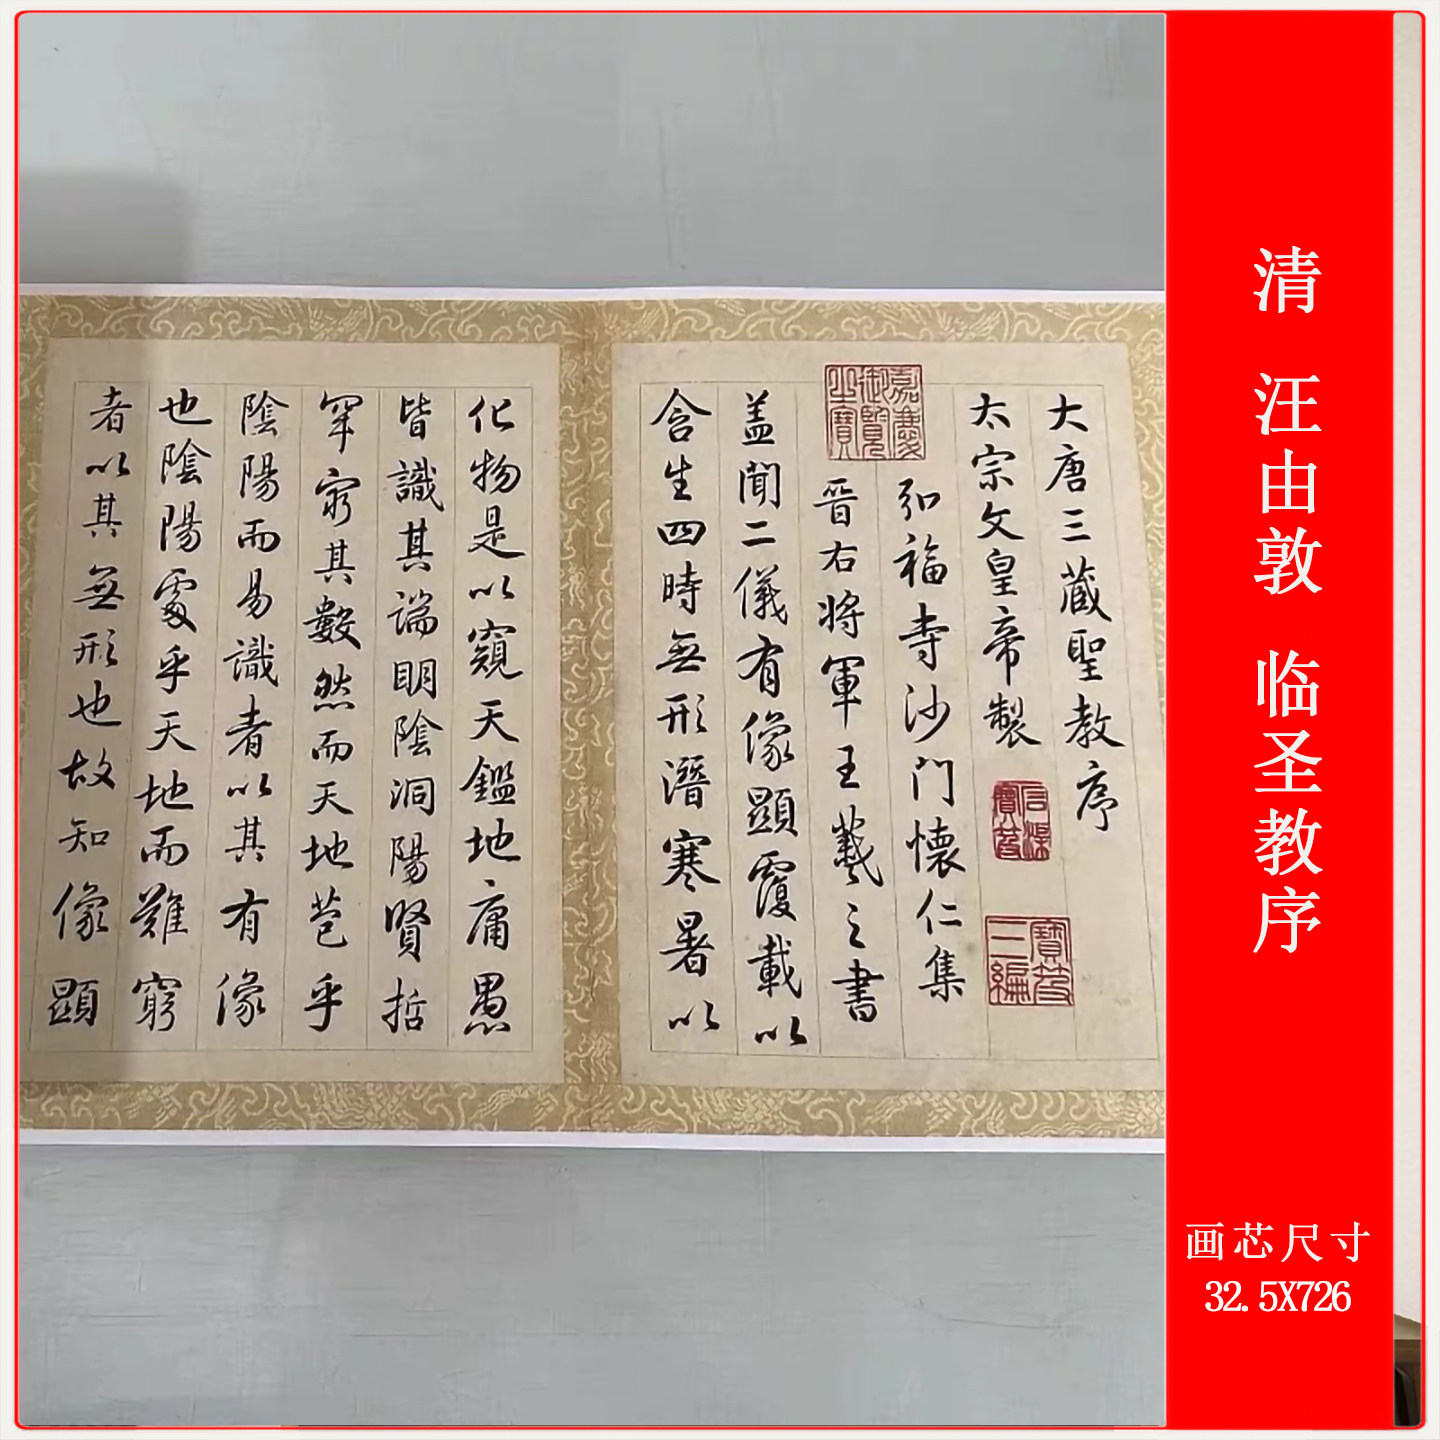 大唐三藏聖教序
太宗文皇帝製
弘福寺沙門懷仁集
晉右將軍王羲之書
蓋聞二儀有像顯覆載以
含生四時無形潛寒暑以
化物是以窺天鑑地庸愚
皆識其端明陰洞陽賢哲
罕窮其數然而天地苞乎
陰陽而易識者以其有像
也陰陽處乎天地而難窮
者以其無形也故知像顯
嘉慶御覽之寶
寶笈三編
清 汪由敦 临圣教序
画芯尺寸
32.5X726